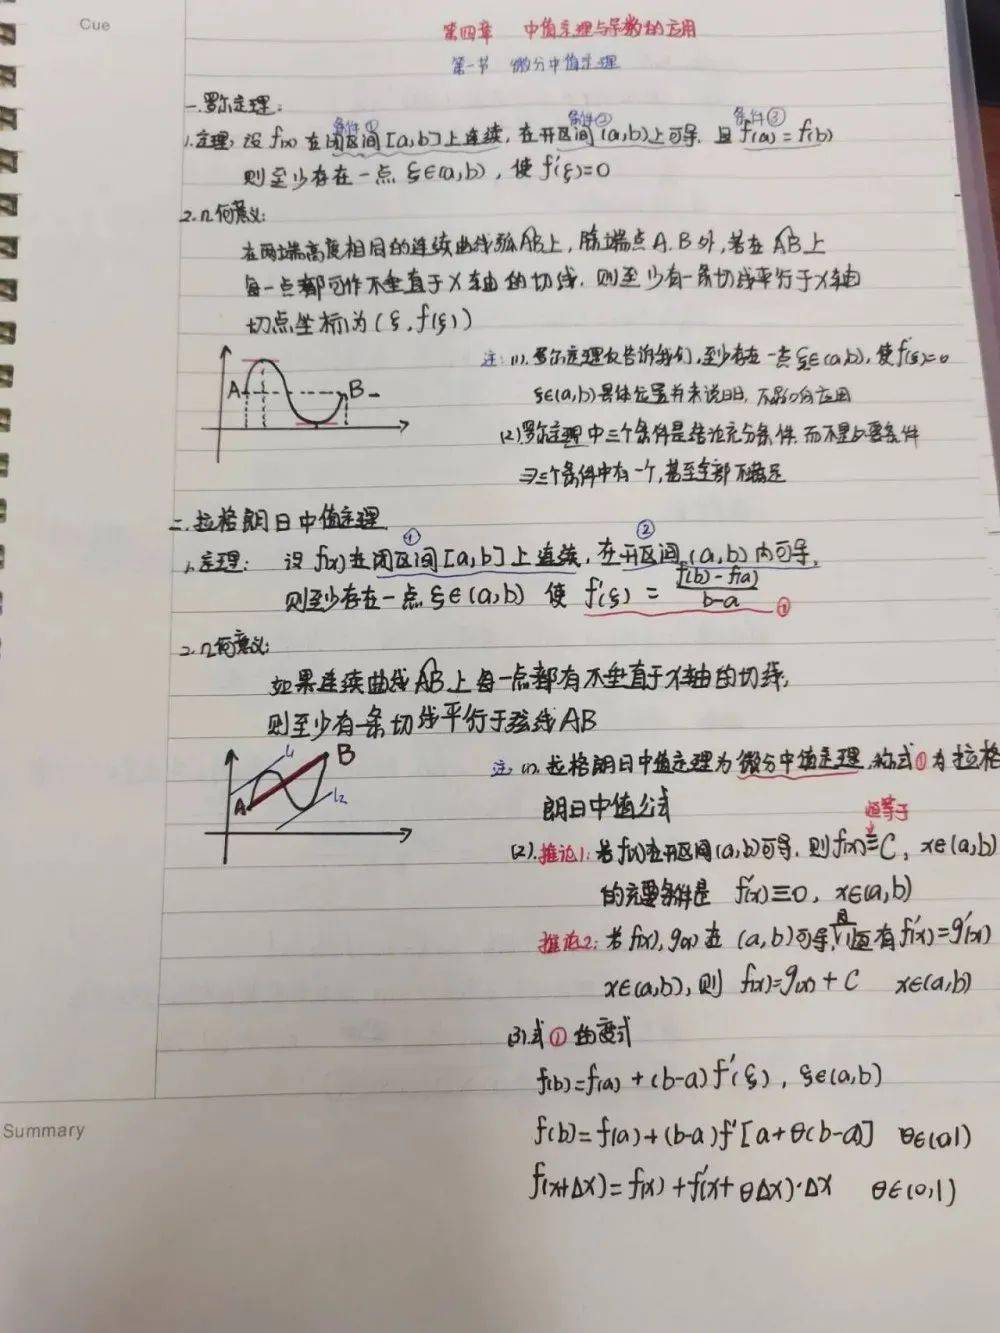 Cue
第四章 中值定理与导数的应用
第一节 微分中值定理
一.罗尔定理:
条件① 条件② 条件③
1.定理: 设 f(x) 在闭区间[a,b]上连续, 在开区间(a,b)上可导, 且 f(a)=f(b)
则至少存在一点 ξ∈(a,b), 使 f'(ξ)=0
2.几何意义:
在两端高度相同的连续曲线弧AB上, 除端点A.B外, 若在AB上
每一点都可作不垂直于X轴的切线, 则至少有一条切线平行于X轴
切点坐标为(ξ,f(ξ))
注: (1). 罗尔定理仅告诉我们, 至少存在一点ξ∈(a,b), 使f'(ξ)=0
ξ∈(a,b)具体位置并未说明, 不影响应用
(2)罗尔定理中三个条件是结论充分条件, 而不是必要条件
⇒三个条件中有一个, 甚至全部不满足
A B
二.拉格朗日中值定理
① ②
1.定理: 设 f(x)在闭区间[a,b]上连续, 在开区间(a,b)内可导,
则至少存在一点 ξ∈(a,b) 使 f'(ξ) = \frac{f(b)-f(a)}{b-a} ①
2.几何意义:
如果连续曲线AB上每一点都有不垂直于x轴的切线,
则至少有一条切线平行于弦线AB
A B l₁ l₂
注: (1). 拉格朗日中值定理为微分中值定理, 称式①为拉格
朗日中值公式
恒等于
(2).推论1: 若f(x)在开区间(a,b)可导, 则f(x)≡C, x∈(a,b)
的充要条件是 f'(x)≡0, x∈(a,b)
推论2: 若 f(x), g(x) 在 (a,b)可导, 且恒有f'(x)=g'(x)
x∈(a,b), 则 f(x)=g(x)+C x∈(a,b)
(3).式①的变式
f(b)=f(a)+(b-a)f'(ξ), ξ∈(a,b)
f(b)=f(a)+(b-a)f'[a+θ(b-a)] θ∈(0,1)
f(x+Δx)=f(x)+f'(x+θΔx)·Δx θ∈(0,1)
Summary